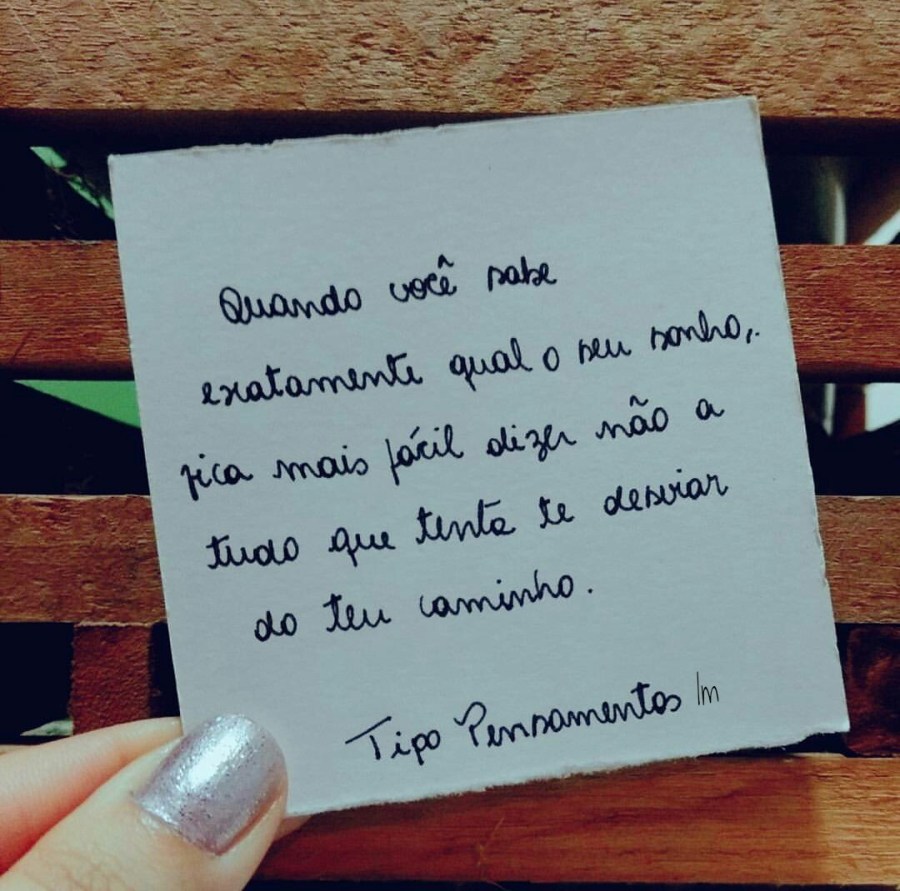 Quando você sabe
exatamente qual o seu sonho,
fica mais fácil dizer não a
tudo que tenta te desviar
do teu caminho.
Tipo Pensamentos lm